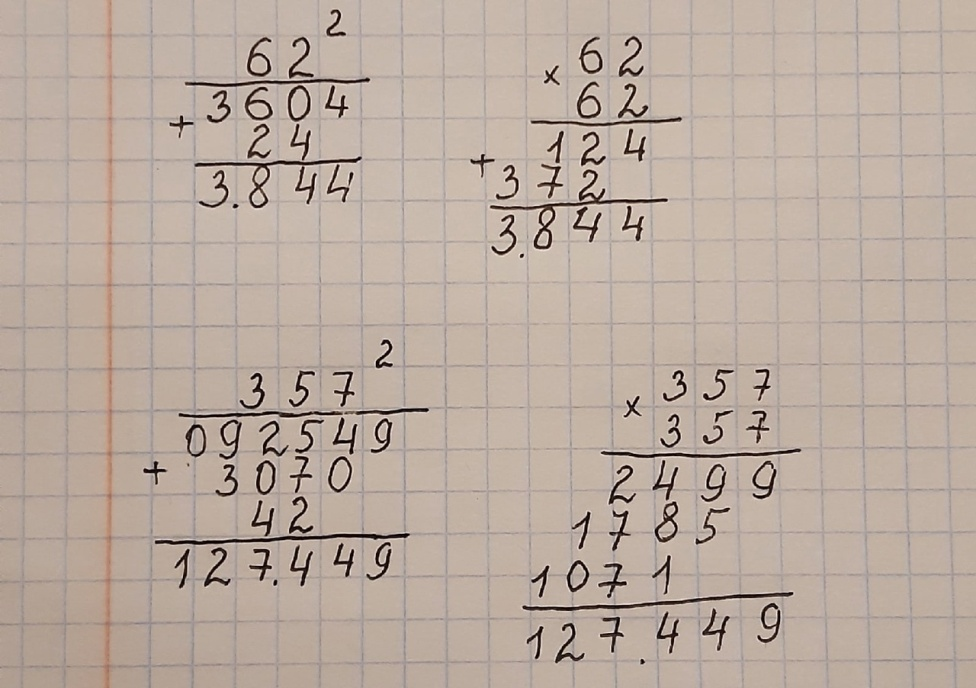 62²
+ 3604
24
3.844
× 62
62
+ 124
372
3.844
357²
+ 092549
3070
42
127.449
× 357
357
2499
1785
1071
127.449